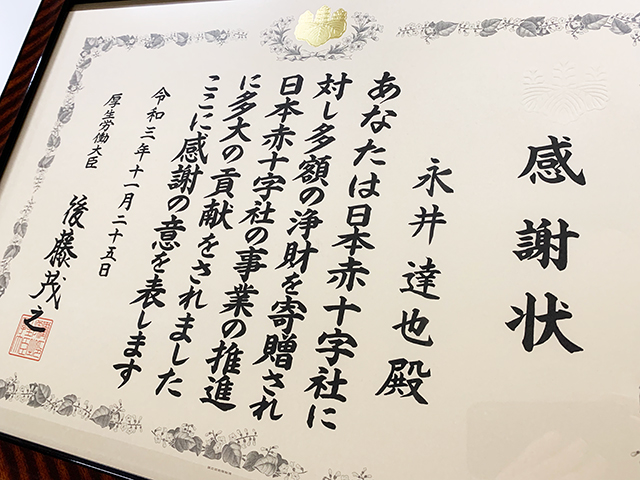 感謝状
永井達也殿
あなたは日本赤十字社に
対し多額の浄財を寄贈され
日本赤十字社の事業の推進
に多大の貢献をされました
ここに感謝の意を表します
令和三年十一月二十五日
厚生労働大臣
後藤茂之